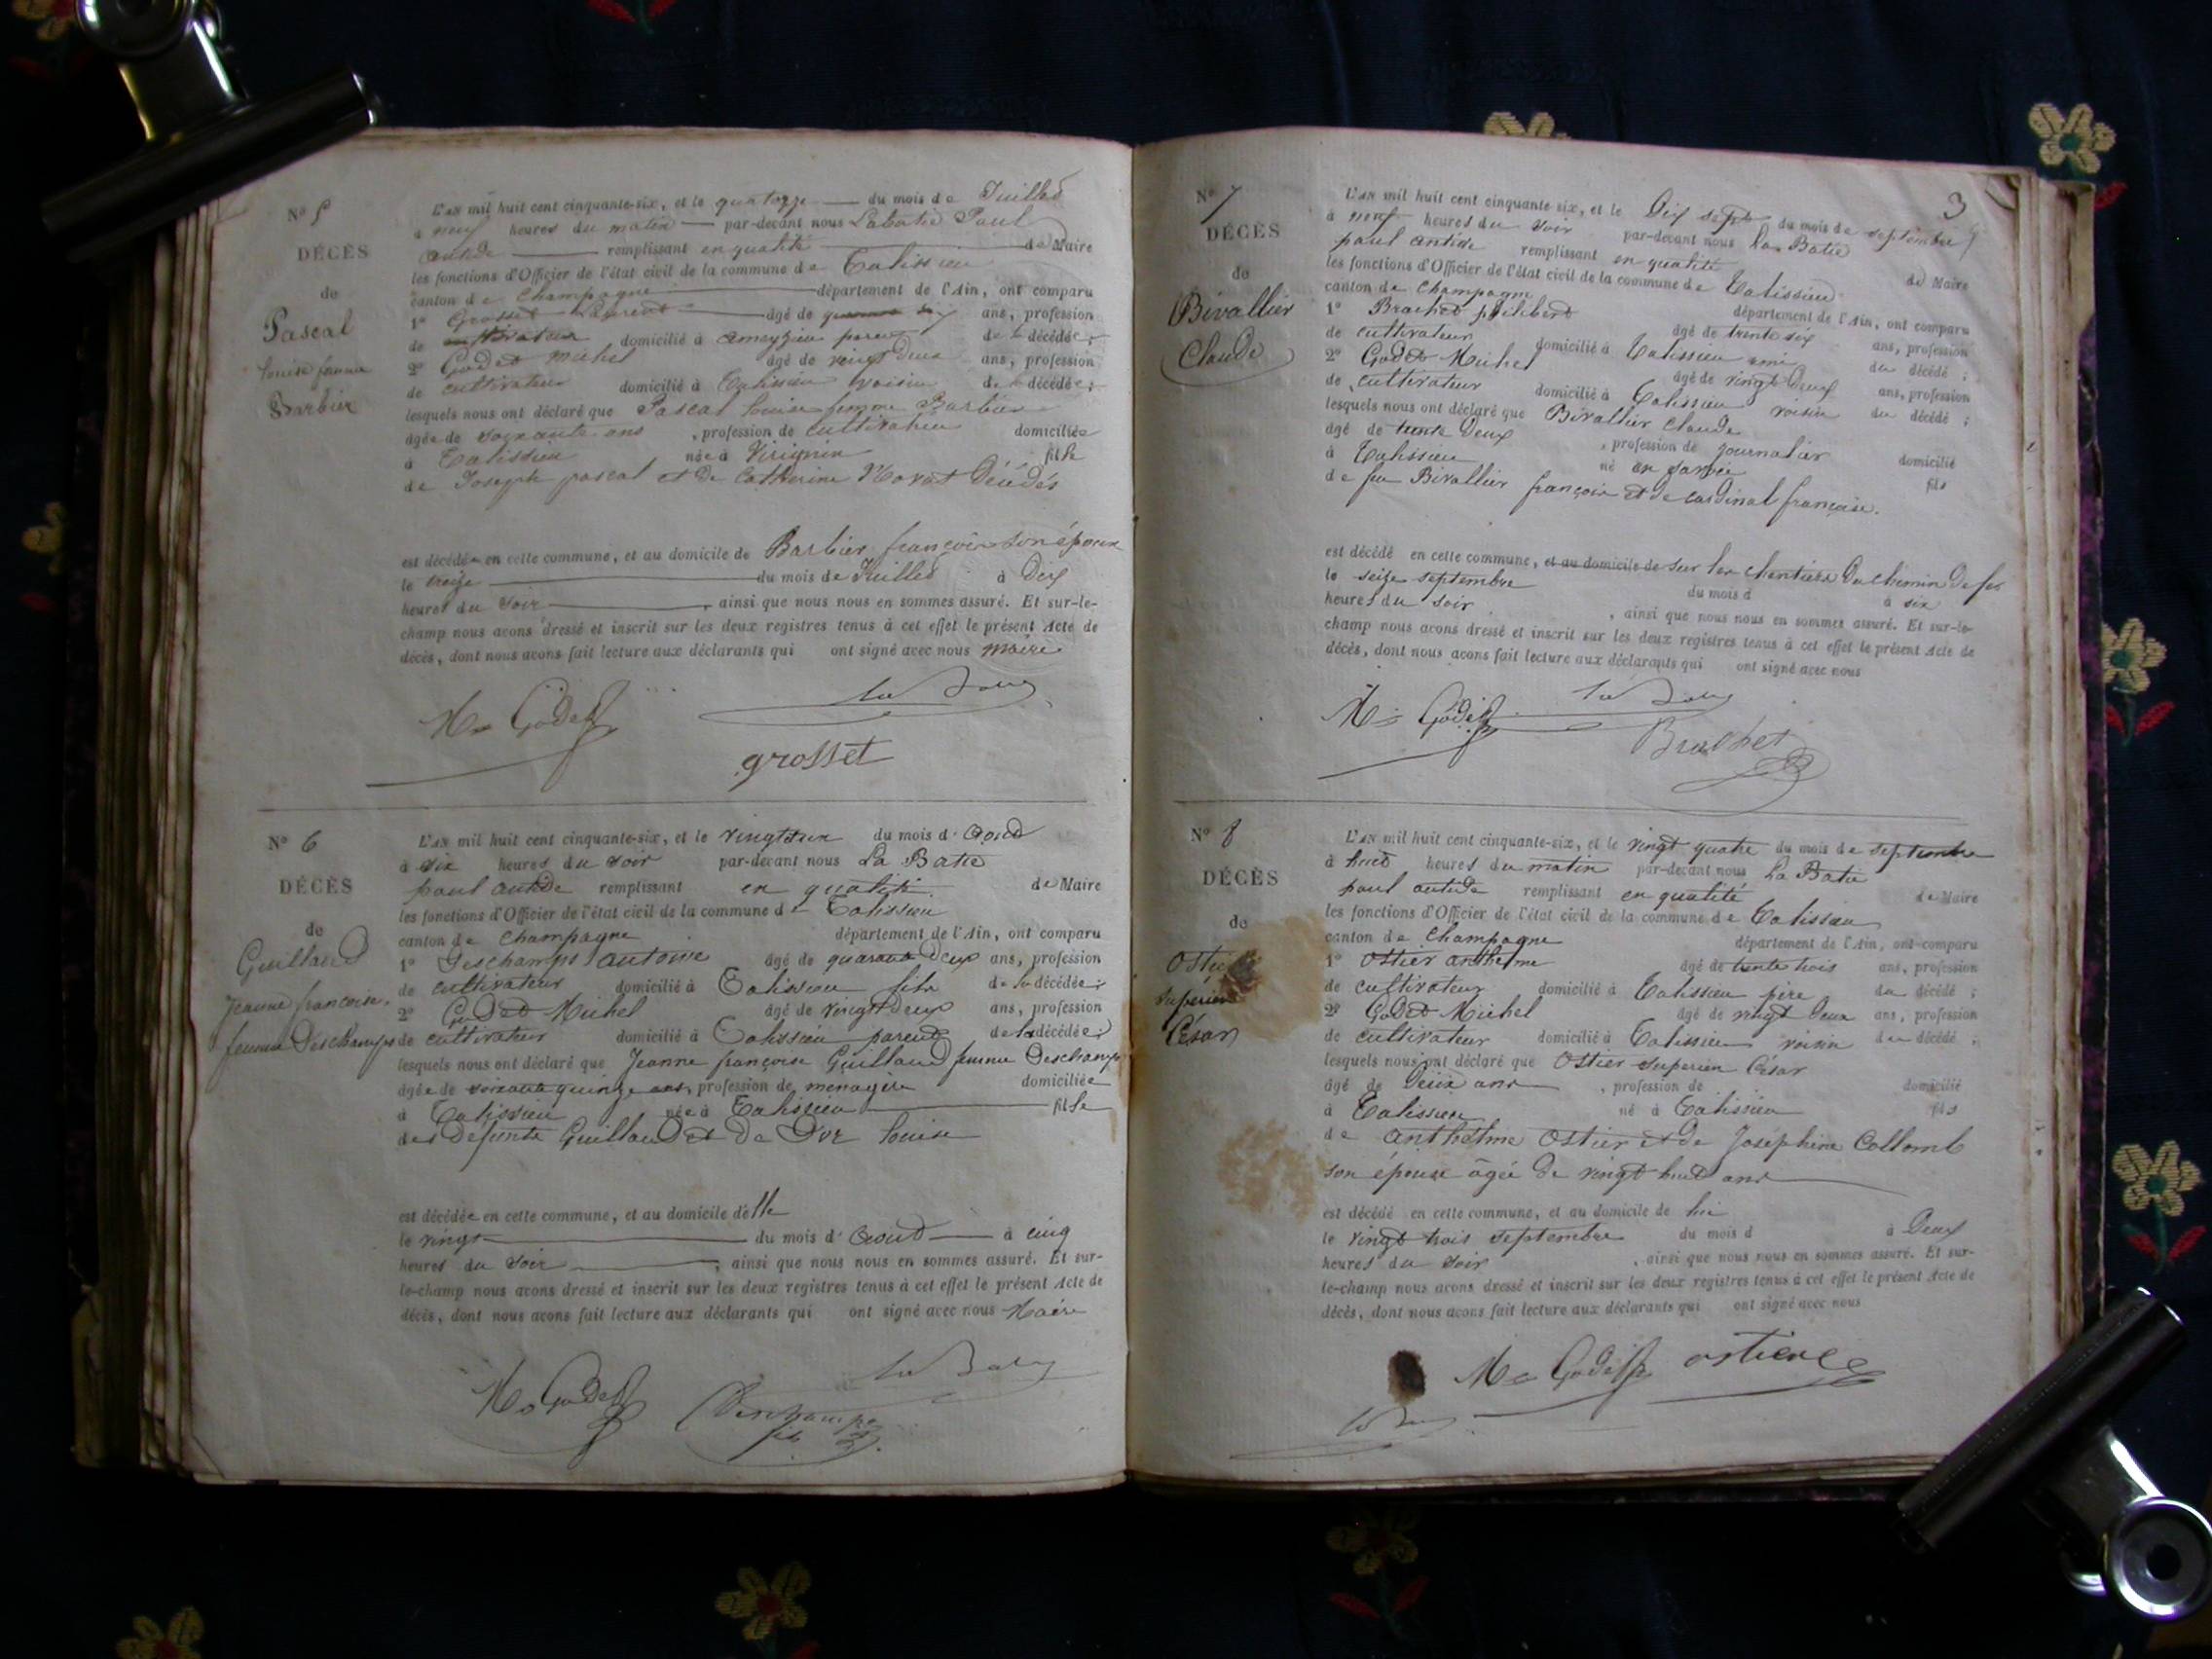 N° 5
DÉCÈS
de
Pascal
louise femme
Barbier
L'AN mil huit cent cinquante-six, et le quatorze du mois de Juillet
à neuf heures du matin par-devant nous Labatie Paul
antide remplissant en qualité de Maire
les fonctions d'Officier de l'état civil de la commune de Talissieu
canton de Champagne département de l'Ain, ont comparu
1° Grosset Laurent âgé de ans, profession
de cultivateur domicilié à ameyzieu parent de la décédée ;
2° Godet Michel âgé de vingt deux ans, profession
de cultivateur domicilié à Talissieu voisin de la décédée ;
lesquels nous ont déclaré que Pascal louise femme Barbier
âgée de soixante ans , profession de cultivateur domiciliée
à Talissieu née à Virignin fille
de Joseph pascal et de Catherine Décédés
est décédée en cette commune, et au domicile de Barbier françois son époux
le treize du mois de Juillet à Dix
heures du soir , ainsi que nous nous en sommes assuré. Et sur-le-
champ nous avons dressé et inscrit sur les deux registres tenus à cet effet le présent Acte de
décès, dont nous avons fait lecture aux déclarants qui ont signé avec nous maire
M Godet
grosset
N° 6
DÉCÈS
de
Guilland
Jeanne françoise,
femme Deschamps
L'AN mil huit cent cinquante-six, et le vingt du mois d' Aoud
à six heures du soir par-devant nous La Batie
paul antide remplissant en qualité de Maire
les fonctions d'Officier de l'état civil de la commune de Talissieu
canton de Champagne département de l'Ain, ont comparu
1° Deschamps Antoine âgé de quarante deux ans, profession
de cultivateur domicilié à Talissieu fils de la décédée ;
2° Godet Michel âgé de vingt deux ans, profession
de cultivateur domicilié à Talissieu parent de la décédée ;
lesquels nous ont déclaré que Jeanne françoise Guilland femme Deschamp
âgée de soixante quinze ans, profession de menagère domiciliée
à Talissieu née à Talissieu fille
des Defunts Guilland et De louise
est décédée en cette commune, et au domicile d'elle
le vingt du mois d' Aoud à cinq
heures du soir , ainsi que nous nous en sommes assuré. Et sur-
le-champ nous avons dressé et inscrit sur les deux registres tenus à cet effet le présent Acte de
décès, dont nous avons fait lecture aux déclarants qui ont signé avec nous Maire
M Godet Deschamps
fils
3
N° 7
DÉCÈS
de
Bivallier
Claude
L'AN mil huit cent cinquante-six, et le Dix sept du mois de septembre
à neuf heures du soir par-devant nous La Batie
paul antide remplissant en qualité de Maire
les fonctions d'Officier de l'état civil de la commune de Talissieu
canton de Champagne département de l'Ain, ont comparu
1° Brachet philibert âgé de trente six ans, profession
de cultivateur domicilié à Talissieu ami du décédé ;
2° Godet Michel âgé de vingt Deux ans, profession
de cultivateur domicilié à Talissieu voisin du décédé ;
lesquels nous ont déclaré que Bivallier Claude
âgé de trente Deux , profession de journalier domicilié
à Talissieu né en savoie fils
de feu Bivallier françois et de cardinal françoise.
est décédé en cette commune, et au domicile de sur les chantiers Du chemin De fer
le seize septembre du mois d à six
heures du soir , ainsi que nous nous en sommes assuré. Et sur-le-
champ nous avons dressé et inscrit sur les deux registres tenus à cet effet le présent Acte de
décès, dont nous avons fait lecture aux déclarants qui ont signé avec nous
M Godet
Brachet
N° 8
DÉCÈS
de
Ostier
superien
César
L'AN mil huit cent cinquante-six, et le vingt quatre du mois de septembre
à huit heures du matin par-devant nous La Batie
paul antide remplissant en qualité de Maire
les fonctions d'Officier de l'état civil de la commune de Talissieu
canton de Champagne département de l'Ain, ont comparu
1° Ostier anthelme âgé de trente trois ans, profession
de cultivateur domicilié à Talissieu père du décédé ;
2° Godet Michel âgé de vingt Deux ans, profession
de cultivateur domicilié à Talissieu voisin du décédé ;
lesquels nous ont déclaré que Ostier superien César
âgé de Deux ans , profession de domicilié
à Talissieu né à Talissieu fils
de anthelme Ostier et de Joséphine Collomb
son épouse âgée De vingt huit ans
est décédé en cette commune, et au domicile de lui
le vingt trois septembre du mois d à Deux
heures du soir , ainsi que nous nous en sommes assuré. Et sur-
le-champ nous avons dressé et inscrit sur les deux registres tenus à cet effet le présent Acte de
décès, dont nous avons fait lecture aux déclarants qui ont signé avec nous
M Godet ostier